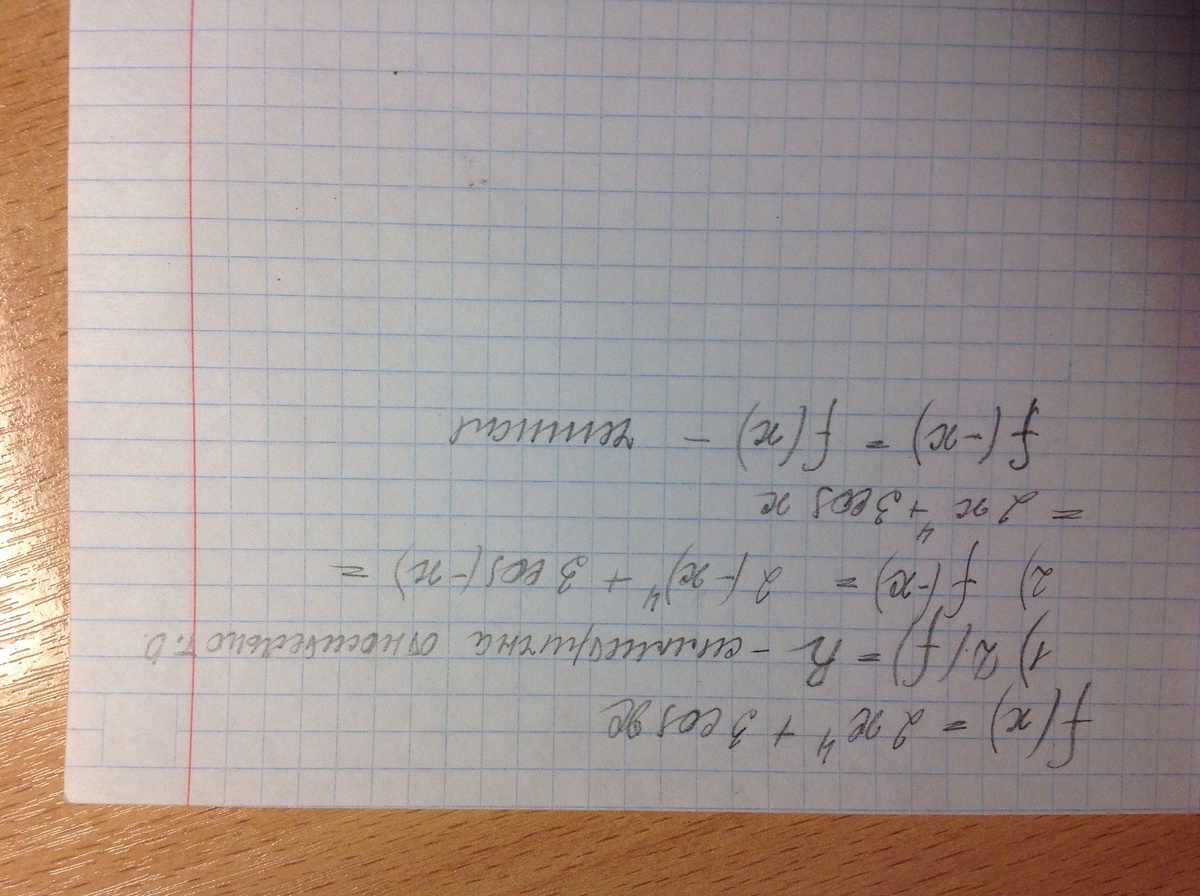 f(x) = 2x⁴ + 3cosx
1) D(f) = R - симметрична относительно т.О.
2) f(-x) = 2(-x)⁴ + 3cos(-x) =
= 2x⁴ + 3cosx
f(-x) = f(x) - четная